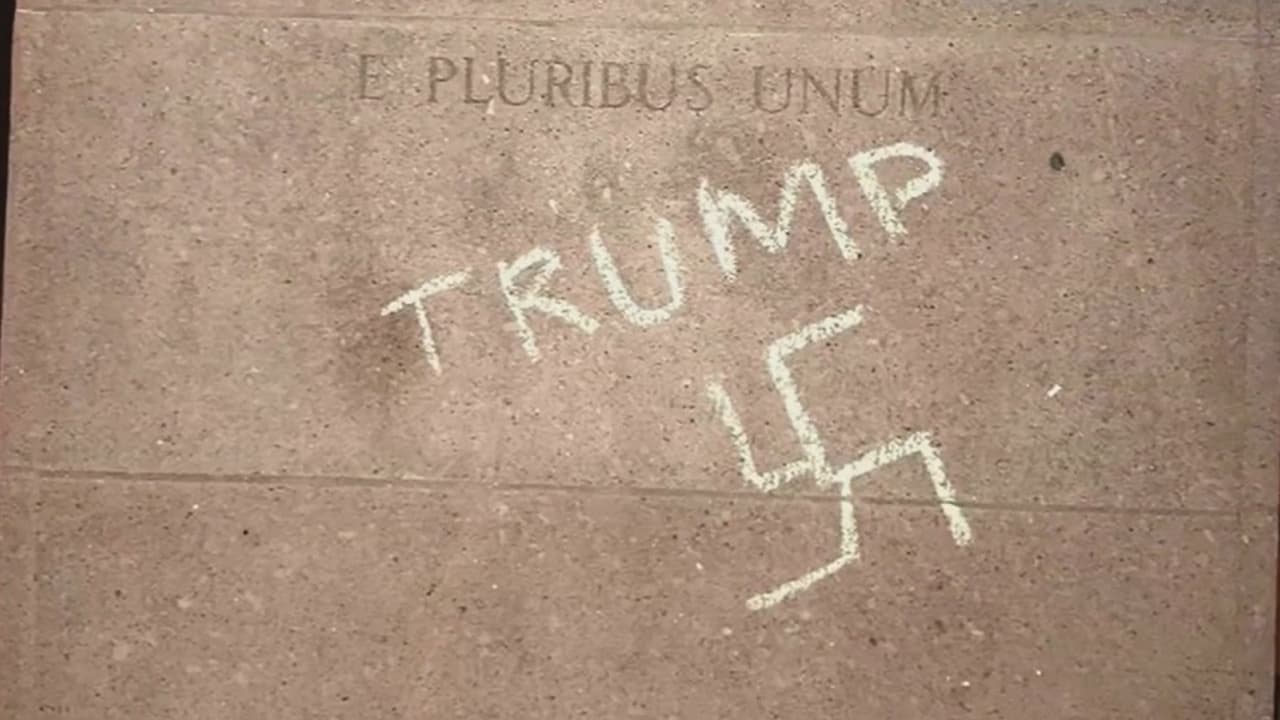 E PLURIBUS UNUM
TRUMP